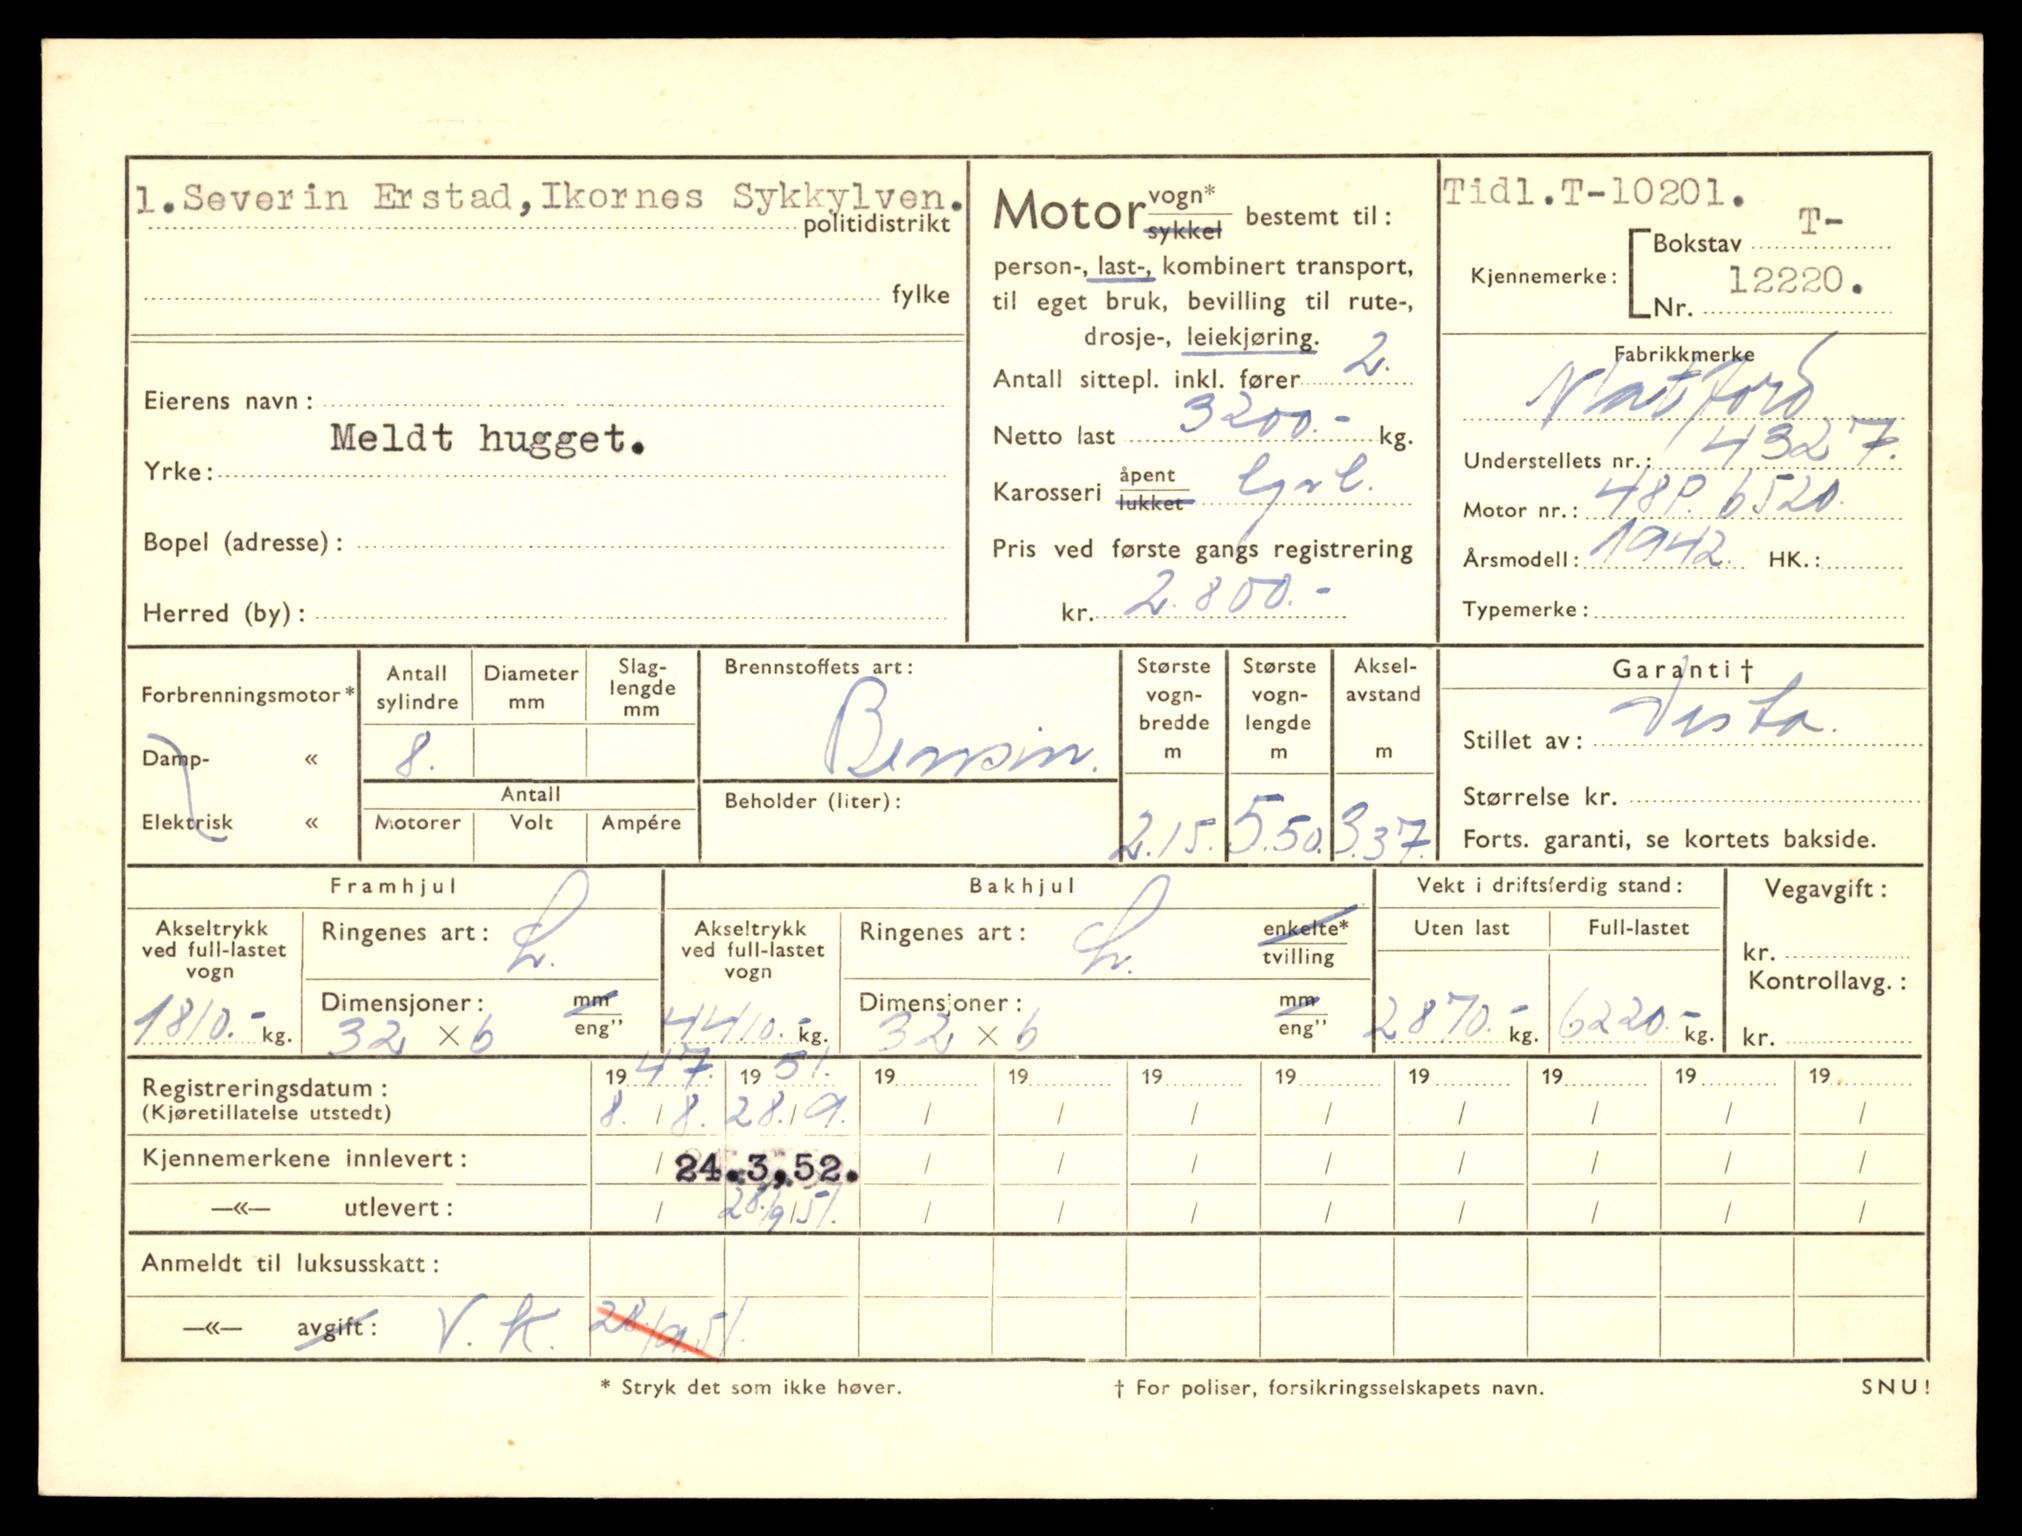 1.Severin Erstad,Ikornes Sykkylven.
politidistrikt
fylke
Eierens navn:
Meldt hugget.
Yrke:
Bopel (adresse):
Herred (by):
Motor vogn* sykkel bestemt til:
person-, last-, kombinert transport,
til eget bruk, bevilling til rute-,
drosje-, leiekjøring.
Antall sittepl. inkl. fører 2.
Netto last 3200.- kg.
Karosseri åpent lukket
Pris ved første gangs registrering
kr. 2.800.-
Tidl.T-10201.
Kjennemerke: Bokstav T-
Nr. 12220.
Fabrikkmerke
Matford
Understellets nr.: 4327.
Motor nr.: 48P. 6520.
Årsmodell: 1942. HK.:
Typemerke:
Forbrenningsmotor*
Damp- «
Elektrisk «
Antall sylindre
8.
Diameter mm
Slag-
lengde
mm
Antall
Motorer Volt Ampére
Brennstoffets art:
Bensin.
Beholder (liter):
Største
vogn-
bredde
m
2.15.
Største
vogn-
lengde
m
5.50.
Aksel-
avstand
m
3.37.
Garanti †
Stillet av: Vesta.
Størrelse kr.
Forts. garanti, se kortets bakside.
Framhjul
Akseltrykk
ved full-lastet
vogn
1810.- kg.
Ringenes art: L.
Dimensjoner: mm eng”
32 x 6
Bakhjul
Akseltrykk
ved full-lastet
vogn
4410.- kg.
Ringenes art: L. enkelte* tvilling
Dimensjoner: mm eng”
32 x 6
Vekt i driftsferdig stand:
Uten last Full-lastet
2870.- kg. 6220.- kg.
Vegavgift:
kr.
Kontrollavg.:
kr.
Registreringsdatum:
(Kjøretillatelse utstedt)
19 47. 19 51. 19 19 19 19 19 19 19 19
8. / 8. 28. / 9. / / / / / / / /
Kjennemerkene innlevert: / 24.3,52. / / / / / / / /
—«— utlevert: / 28./9/51. / / / / / / / /
Anmeldt til luksusskatt:
—«— avgift: V. K. 28./9.51.
* Stryk det som ikke høver.
† For poliser, forsikringsselskapets navn.
SNU!